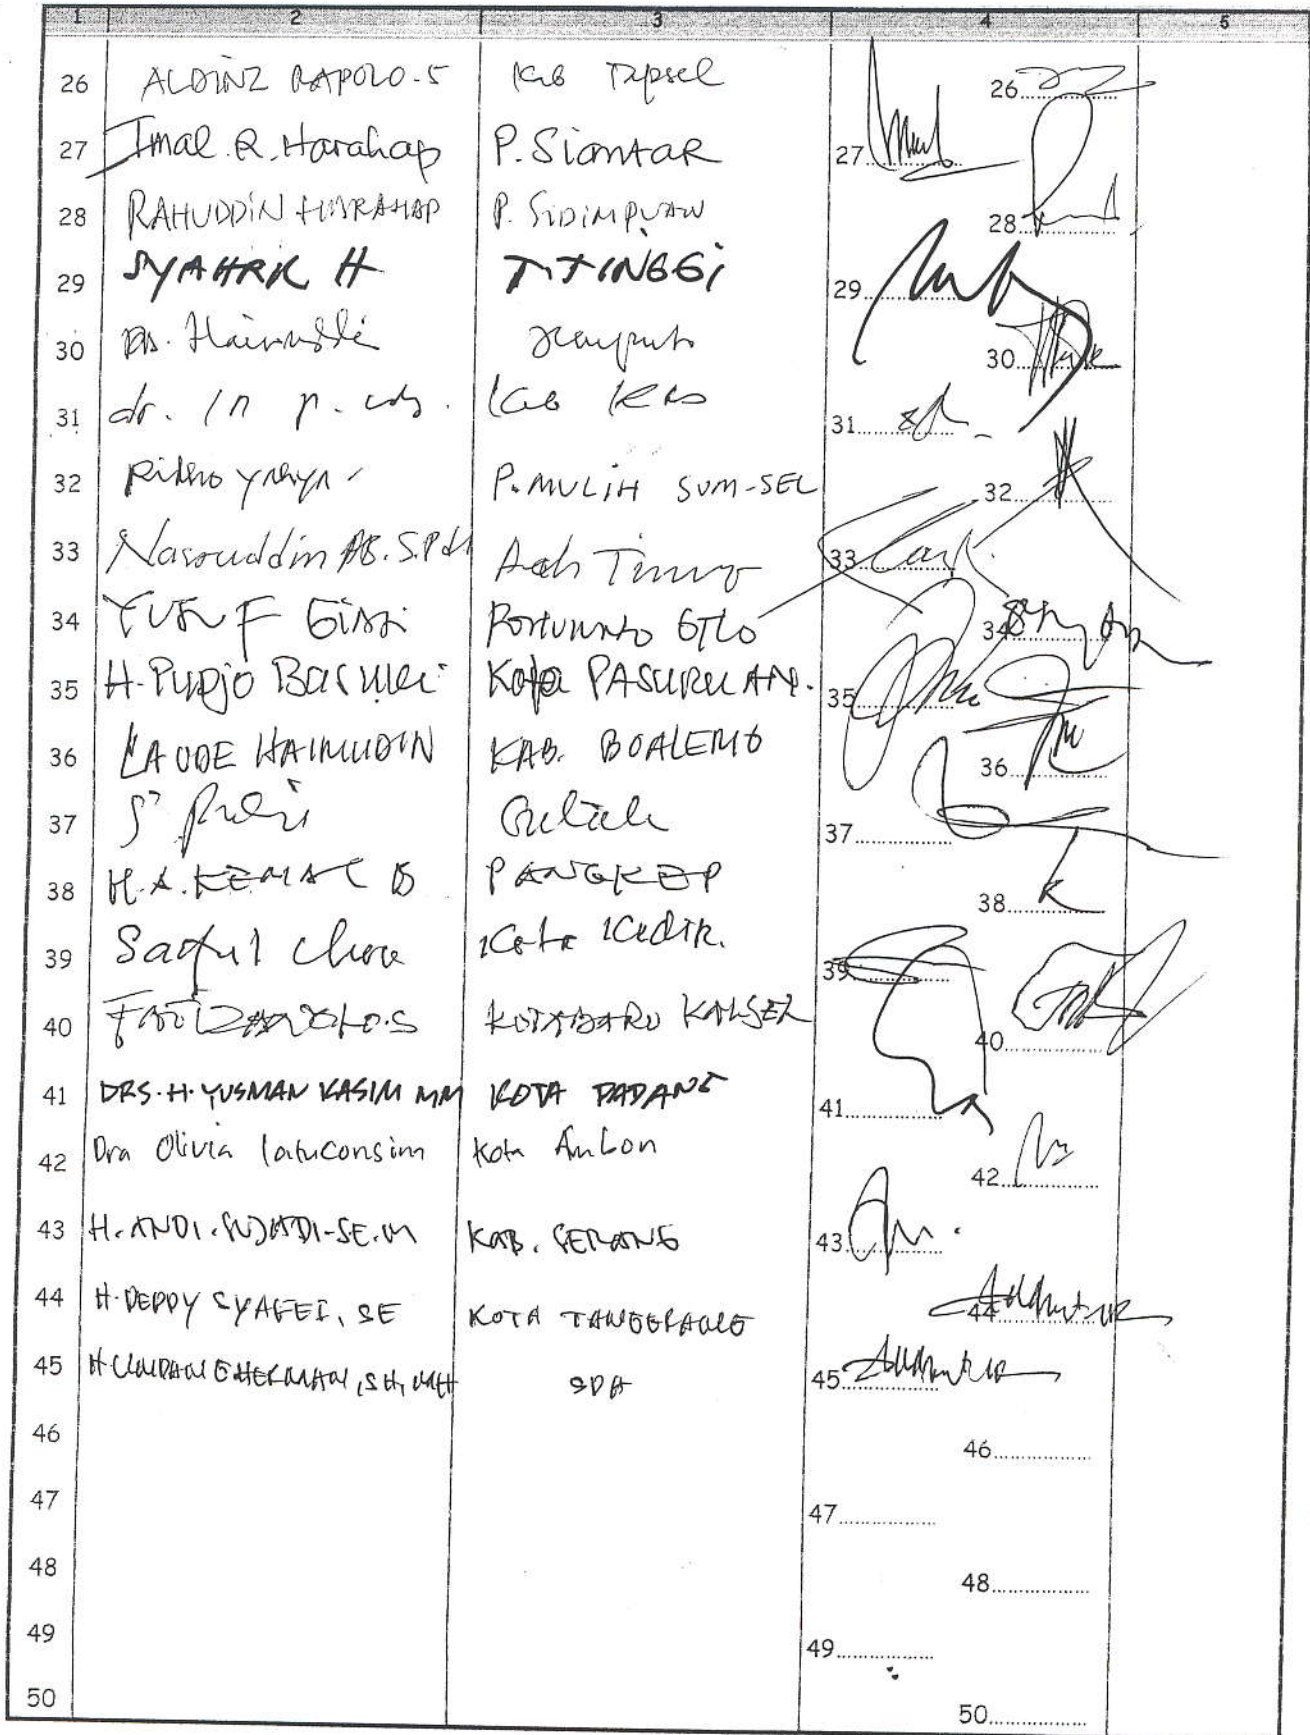 1 2 3 4 5
26 ALDINZ RAPOLO.S Kab Tapsel 26
27 Imal R. Harahap P. Siantar 27
28 RAHUDDIN HARAHAP P. SIDIMPUAN 28
29 SYAHRIL H T.TINGGI 29
30 30
31 dr. Kab 31
32 Ridho yahya P. MULIH SUM-SEL 32
33 Nasruddin AB. S.Pd Aceh Timur 33
34 YUSUF GTLO 34
35 H. Pudjo Basuki Kota PASURUAN. 35
36 LA ODE HAIMUDIN KAB. BOALEMO 36
37 37
38 H.A. KEMAL B PANGKEP 38
39 Kota Kediri. 39
40 KOTABARU KALSEL 40
41 DRS. H. YUSMAN KASIM MM KOTA PADANG 41
42 Dra Olivia latuconsina Kota Ambon 42
43 H. ANDI. SUJADI-SE.M KAB. SERANG 43
44 H. DEDDY SYAFEI, SE KOTA TANGERANG 44
45 SH, MH SDA 45
46 46
47 47
48 48
49 49
50 50